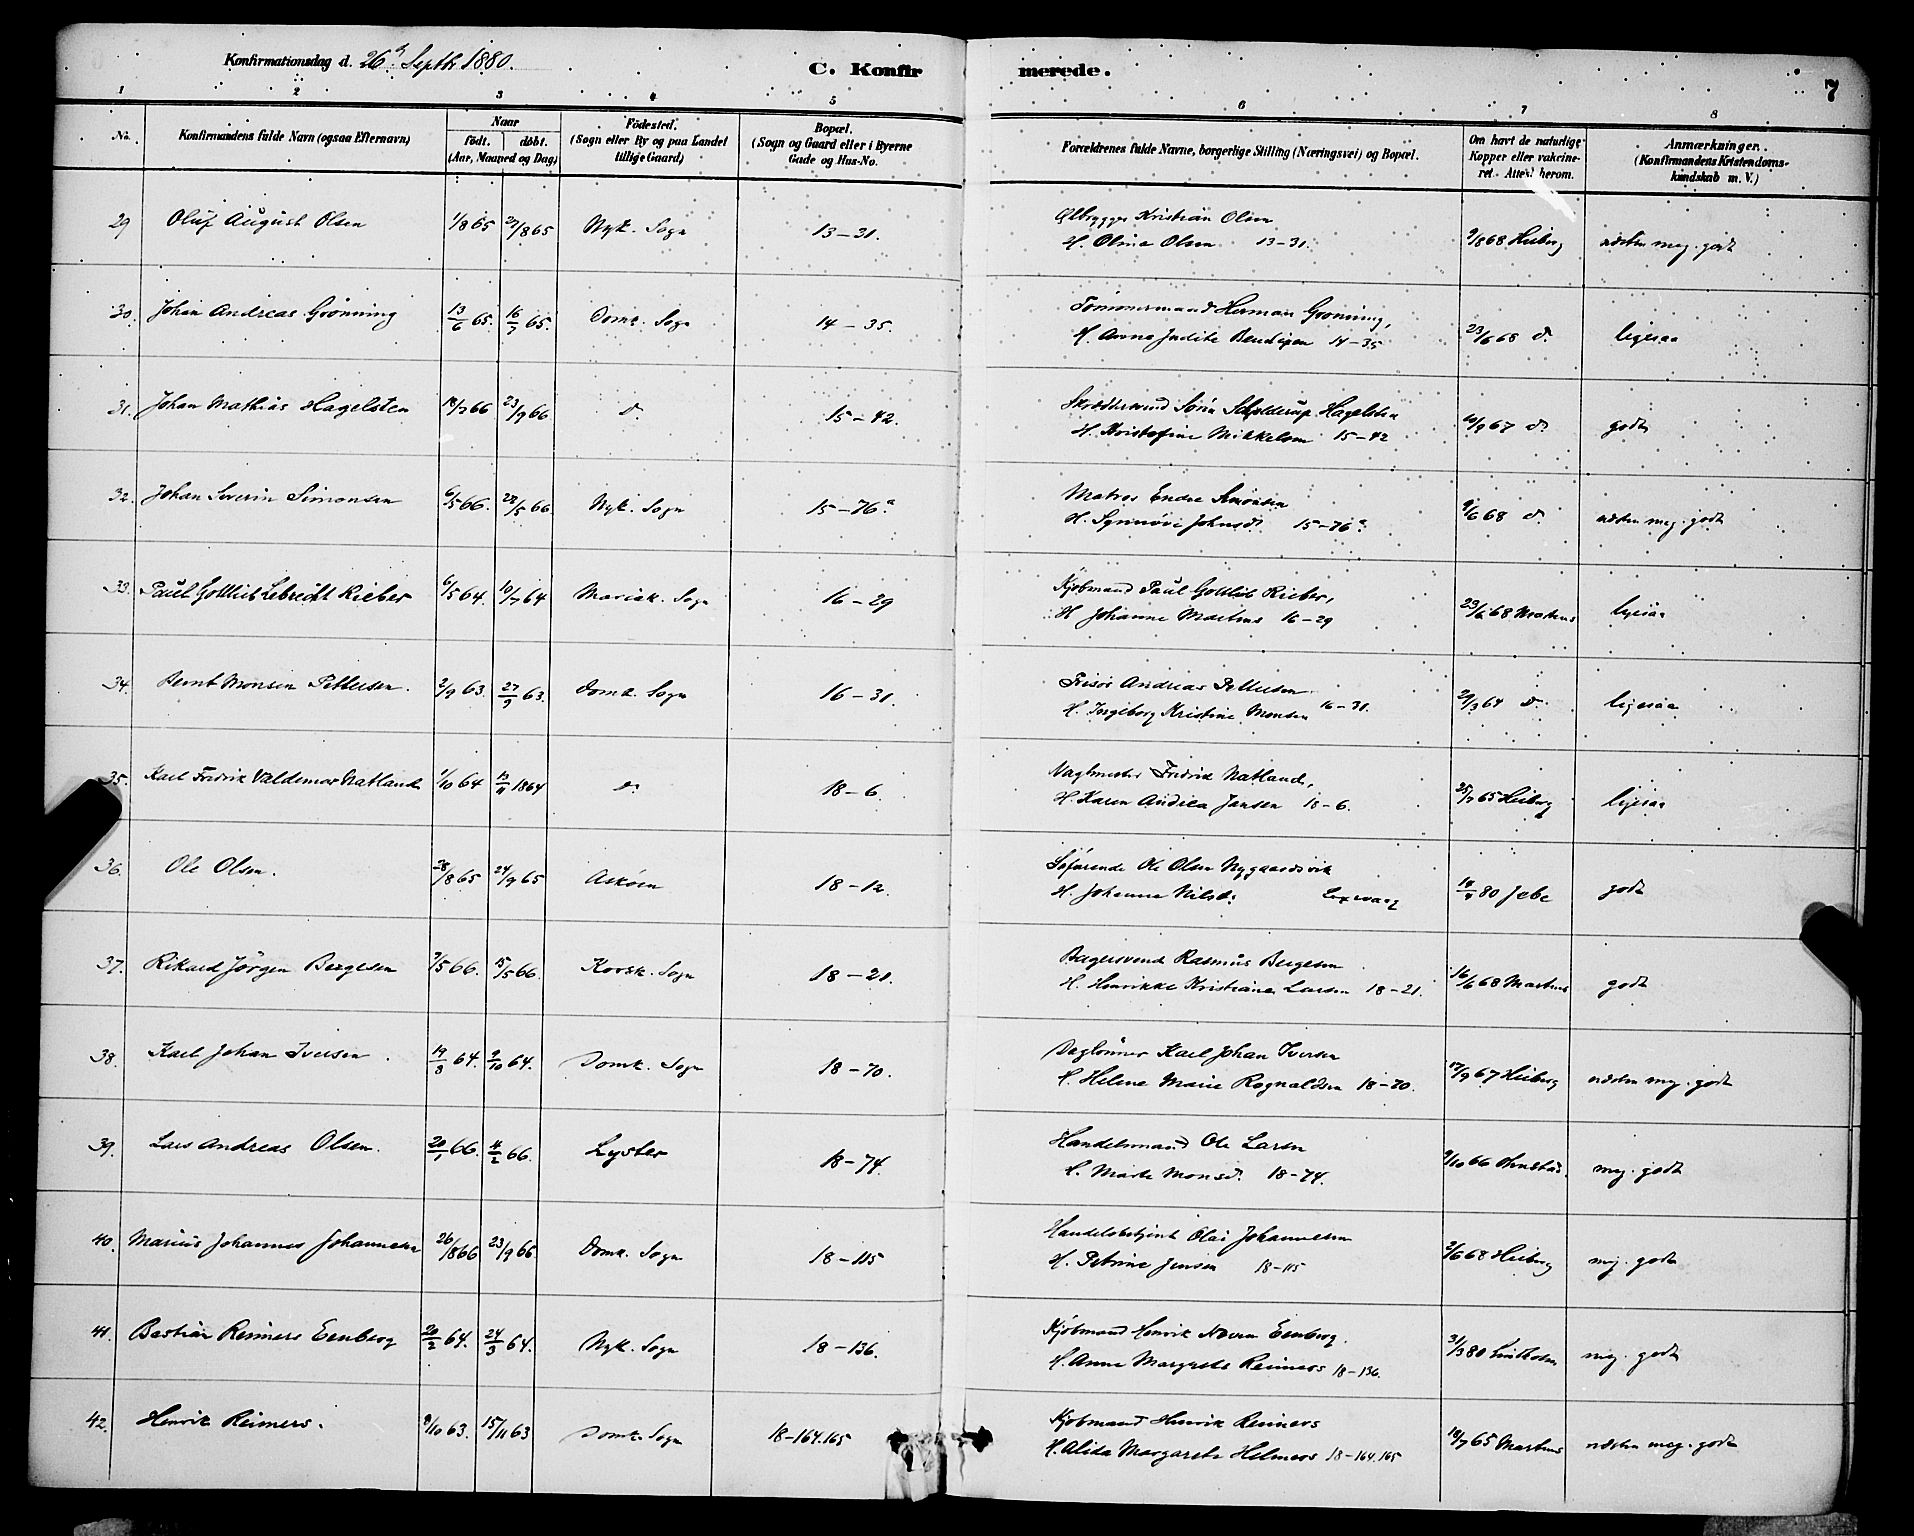 Konfirmationsdag d. 26de Septbr 1880. C. Konfirmerede. 7
1 2 3 4 5 6 7 8
No. Konfirmandens fulde Navn (ogsaa Efternavn) Naar födt. döbt. (Aar, Maaned og Dag) Födested. (Sogn eller By og paa Landet tillige Gaard) Bopæl. (Sogn og Gaard eller i Byerne Gade og Hus-No. Forældrenes fulde Navne, borgerlige Stilling (Næringsvei) og Bopæl. Om havt de naturlige Kopper eller vakcineret. Attest herom. Anmærkninger. (Konfirmandens Kristendomskundskab m. V.)
29 Oluf August Olsen 1/8 65 27/8 65 Nyk. Sogn 13-31. Ølbrygger Kristian Olsen 9/8 68 Heiberg næsten meg. godt
H. Oline Olsen 13-31.
30. Johan Andreas Grönning 13/6 65. 16/7 65. Domk. Sogn 14-35. Tömmermand Herman Grönning, 23/6 68 do. ligesaa
H. Anna Judite Bendixen 14-35
31. Johan Mathias Hagelsten 18/7 66 23/9 66 do. 15-42. Skræddersvend Sören Schjelderup Hagelsten 10/9 67 do. godt
H. Kristofine Mikkelsen 15-42
32. Johan Severin Simonsen 6/5 66. 27/5 66 Nyk. Sogn 15-76a Matros Endre Simonsen 9/6 68 do. næsten meg. godt
H. Synnöve Johnsd. 15-76a
33. Paul Gottlieb Lebrecht Rieber 6/5 64. 10/7 64 Mariak. Sogn 16-29 Kjøbmand Paul Gottlieb Rieber, 23/6 68 Martens ligesaa
H. Johanne Martens 16-29
34. Bernt Monsen Pettersen. 2/9 63. 27/9 63. Domk. Sogn 16-31. Frisör Andreas Pettersen 29/3 64 do. ligesaa
H. Ingeborg Kristine Monsen 16-31.
35. Karl Fredrik Valdemar Natland 1/10 64 13/11 1864 do. 18-6. Vagtmester Fredrik Natland, 25/7 65 Heiberg ligesaa
H. Karen Andrea Jansen 18-6.
36. Ole Olsen. 28/8 65 24/9 65 Asköen 18-12. Söfarende Ole Olsen Nygaardsvik 14/9 80 Jebe godt
H. Johanna Nilsd.
37. Rikard Jörgen Bergesen 7/5 66. 15/5 66. Korsk. Sogn 18-21. Bagersvend Rasmus Bergesen 16/6 68 Martens godt
H. Henrikke Kristiane Larsen 18-21.
38. Karl Johan Iversen 19/8 64. 9/10 64. Domk. Sogn 18-70. Daglönner Karl Johan Iversen 17/9 67 Heiberg næsten meg. godt
H. Helene Marie Rognaldsen 18-70.
39. Lars Andreas Olsen. 20/1 66. 11/2 66. Lyster 18-74. Handelsmand Ole Larsen 9/10 66 meg. godt
H. Marte Monsd. 18-74.
40. Marius Johannes Johannesen 26/8 66 23/9 66. Domk. Sogn 18-115 Handelsbetjent Olai Johannesen 2/6 68 Heiberg meg. godt
H. Petrine Jensen 18-115
41. Bastian Reimers Eenberg 20/2 64. 24/3 64. Nyk. Sogn 18-136. Kjøbmand Henrik Eenberg. 31/3 80 Lindholm meg. godt
H. Anne Margrete Reimers 18-136.
42. Henrik Reimers. 9/10 63. 15/11 63 Domk. Sogn 18-164.165 Kjøbmand Henrik Reimers 18/7 65 Martens næsten meg. godt
H. Alida Margarete Helmers 18-164.165